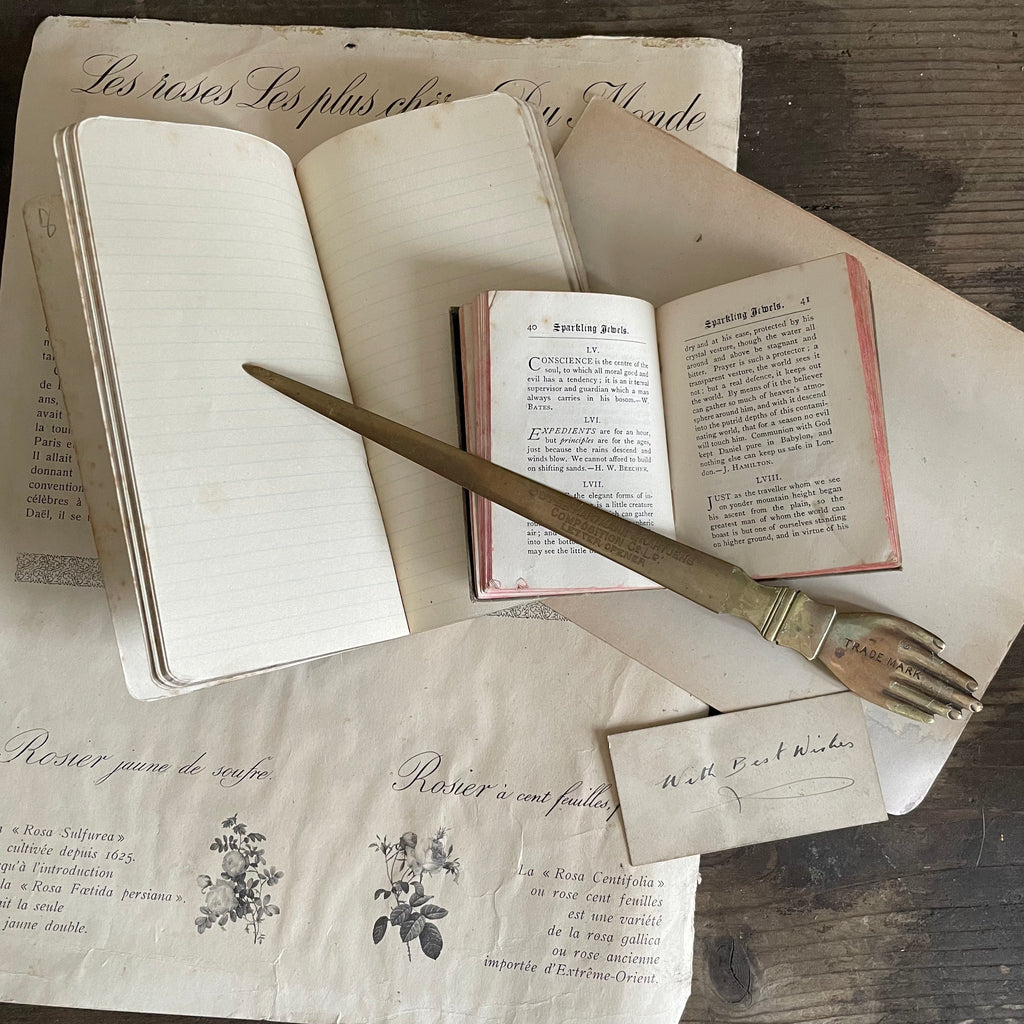 Les roses Les plus Du Monde
donnant
convention
célèbres à
Daël, il se
40 Sparkling Jewels.
LV.
CONSCIENCE is the centre of the
soul, to which all moral good and
evil has a tendency; it is an internal
supervisor and guardian which a man
always carries in his bosom.—W.
BATES.
LVI.
EXPEDIENTS are for an hour,
but principles are for the ages,
just because the rains descend and
winds blow. We cannot afford to build
on shifting sands.—H. W. BEECHER.
LVII.
the elegant forms of in-
is a little creature
which can gather
air; and
into the bott
may see the little
Sparkling Jewels. 41
dry and at his ease, protected by his
crystal vesture, though the water all
around and above be stagnant and
bitter. Prayer is such a protector; a
transparent vesture, the world sees it
not; but a real defence, it keeps out
the world. By means of it the believer
can gather so much of heaven's atmo-
sphere around him, and with it descend
into the putrid depths of this contami-
nating world, that for a season no evil
will touch him. Communion with God
kept Daniel pure in Babylon, and
nothing else can keep us safe in Lon-
don.—J. HAMILTON.
LVIII.
JUST as the traveller whom we see
on yonder mountain height began
his ascent from the plain, so the
greatest man of whom the world can
boast is but one of ourselves standing
on higher ground, and in virtue of his
LETTER OPENER
TRADE MARK
With Best Wishes
Rosier jaune de soufre.
« Rosa Sulfurea »
cultivée depuis 1625.
qu'à l'introduction
la « Rosa Fœtida persiana ».
it la seule
jaune double.
Rosier à cent feuilles,
La « Rosa Centifolia »
ou rose cent feuilles
est une variété
de la rosa gallica
ou rose ancienne
importée d'Extrême-Orient.